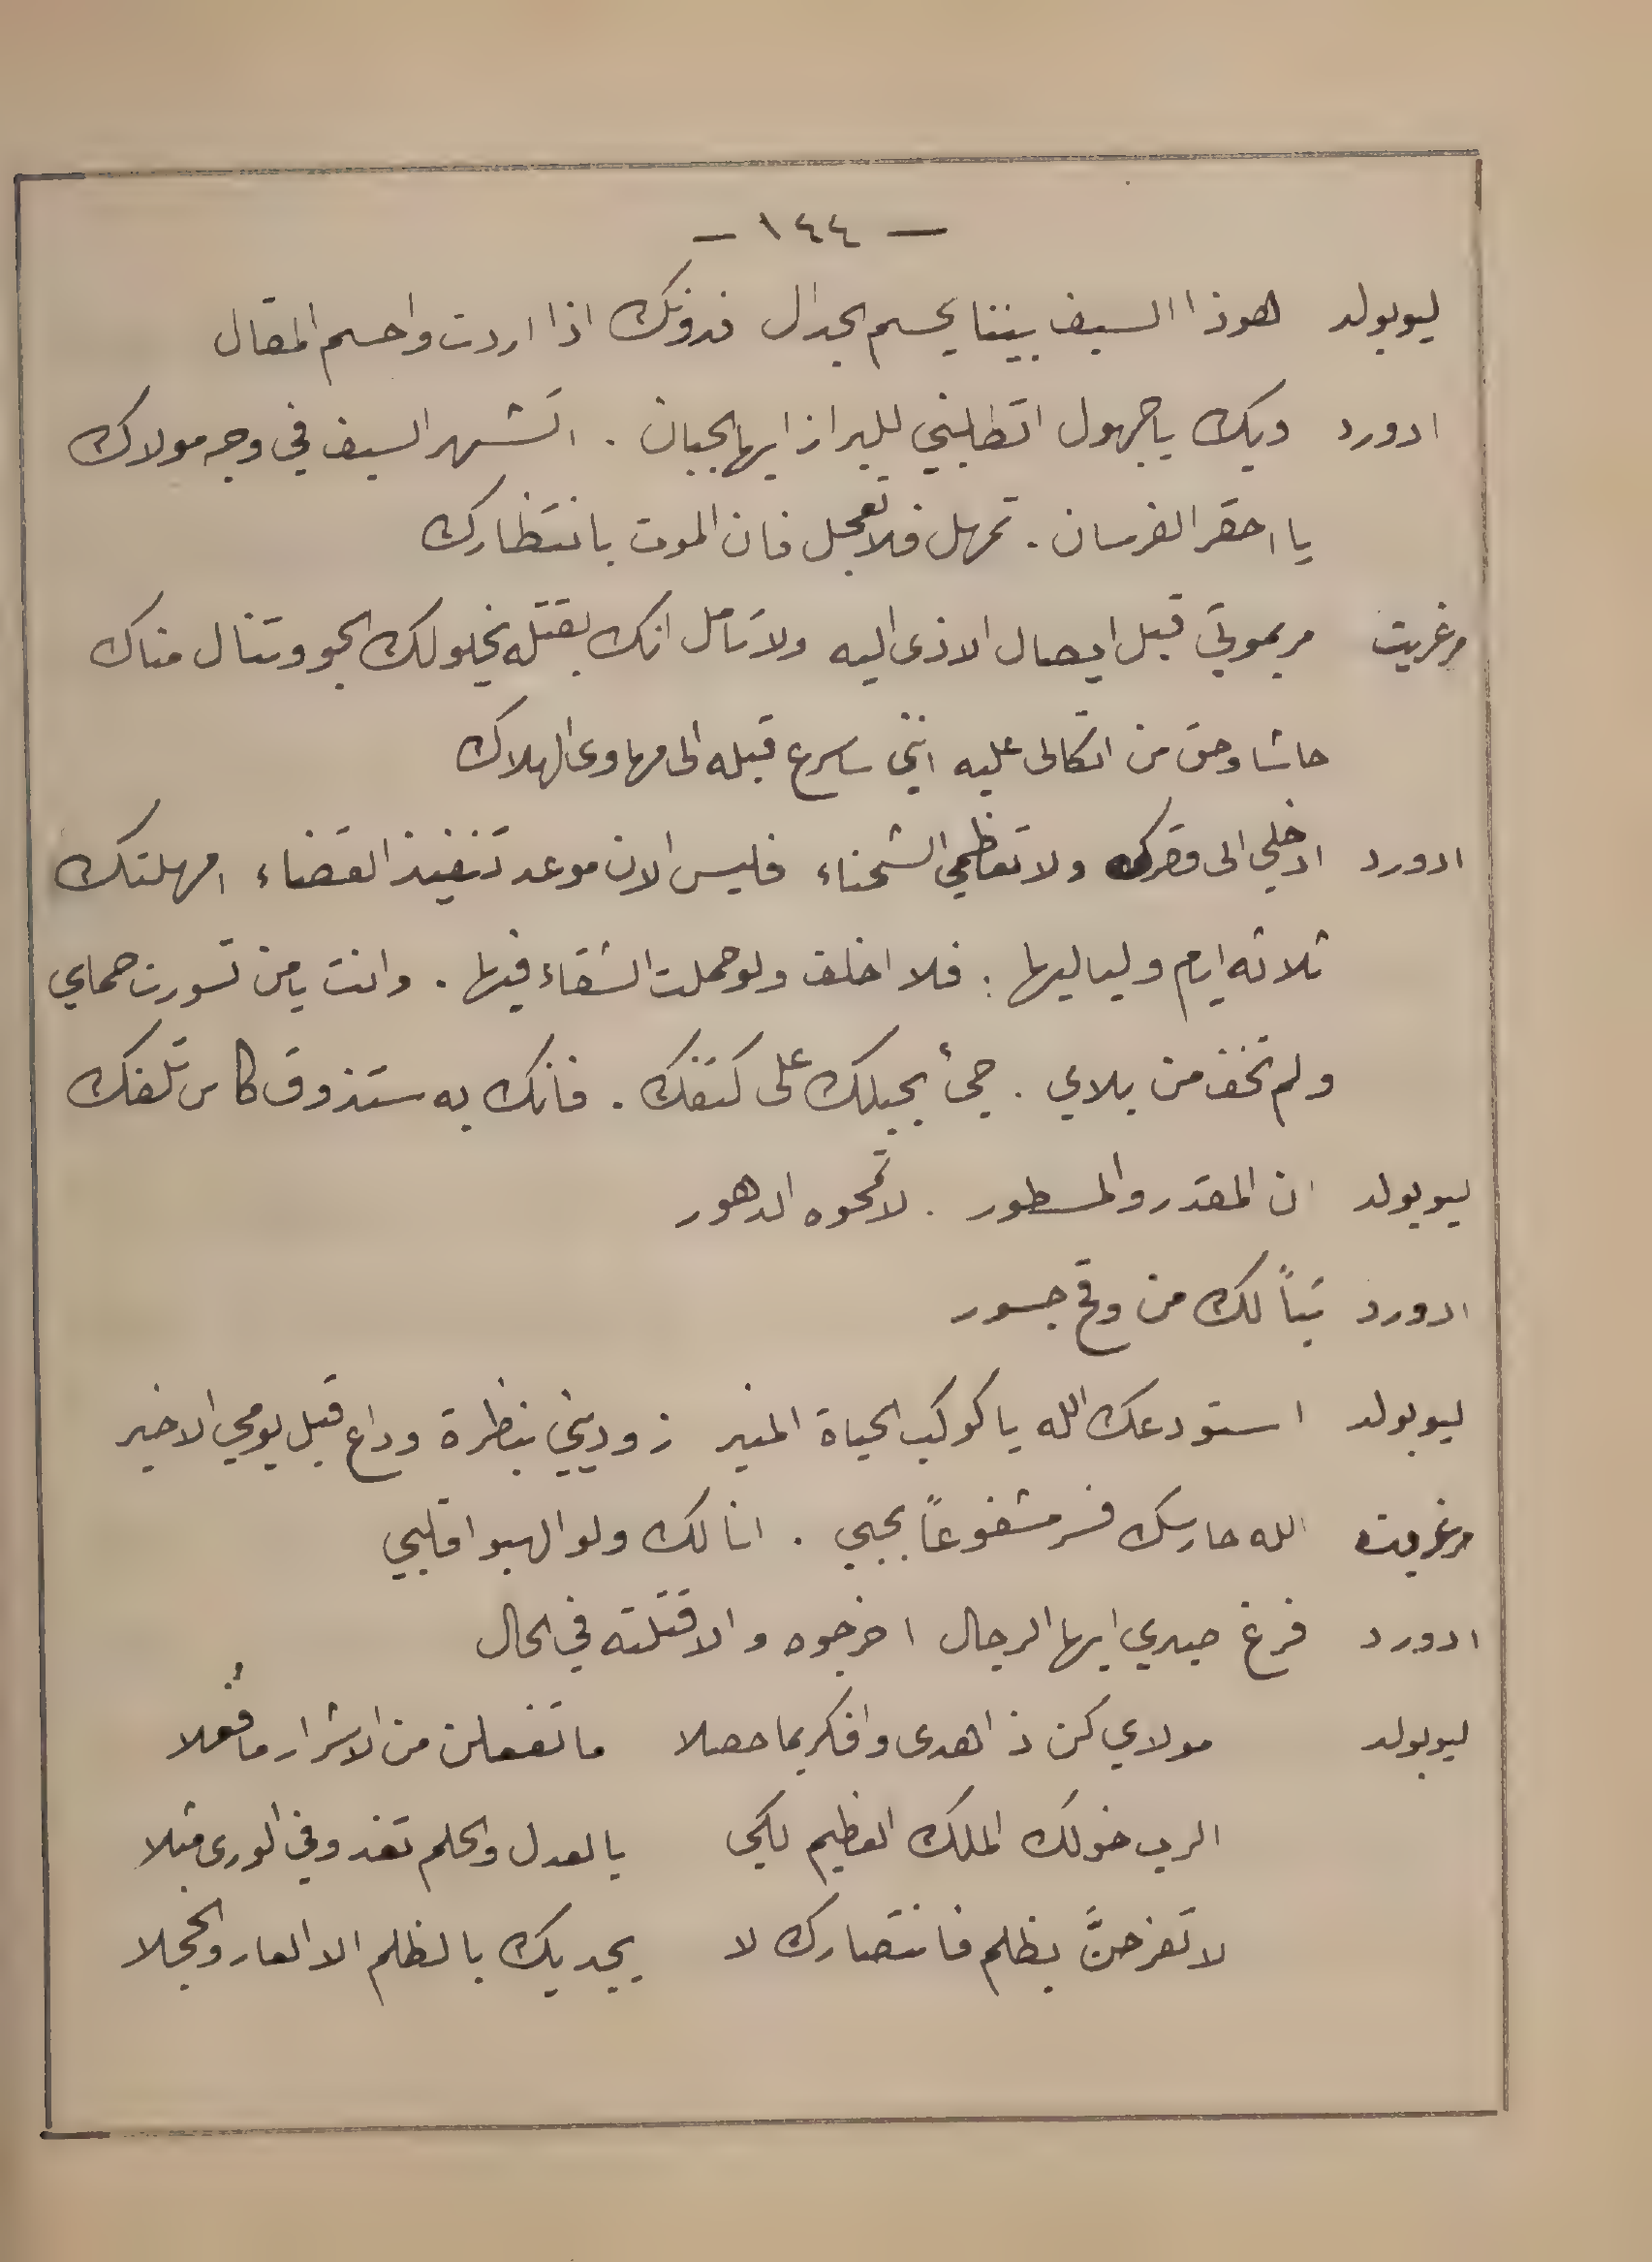 — ١٤٤ —
ليوبولد هوذا السيف بيننا يحسم الجدال فدونك اذا اردت واحسم المقال
ادورد ويك يا جهول اتطلبني للبراز ايها الجبان . اتشهر السيف في وجه مولاك
يا احقر الفرسان . تمهل فلا تعجل فان الموت بانتظارك
مرغريت مر بموتي قبل ايصال الاذى اليه ولا تأمل انك بقتله يخلو لك الجو وتنال مناك
حاشا وحق من اتكالى عليه انني ساسرع قبله الى مهاوى الهلاك
ادورد ادخلي الى قصرك ولا تعظمي الشحناء فليس الان موعد تنفيذ القضاء امهلتك
ثلاثه ايام ولياليها : فلا اخلف ولو حملت الشقاء فيها . وانت يا من تسورت حماي
ولم تخف من بلاي . جئ بحبلك على كتفك . فانك به ستذوق كاس تلفك
ليوبولد ان المقدر والمسطور . لا تمحوه الدهور
ادورد تباً لك من وقح جسور
ليوبولد استودعك الله يا كوكب الحياة المنير زوديني بنظرة وداع قبل يومي الاخير
مرغريت الله حارسك فسر مشفوعاً بحبي . انا لك ولو الهبوا قلبي
ادورد فرغ صبري ايها الرجال اخرجوه والا قتلته في الحال
ليوبولد مولاي كن ذا هدى وافكر بما حصلا ما تفعلن من الاشرار ما فُعلا
الرب خولك الملك العظيم لكي بالعدل والحلم تغدو في الورى مثلا
لا تفرحنَّ بظلم فانتصارك لا يجديك بالظلم الا العار والخجلا